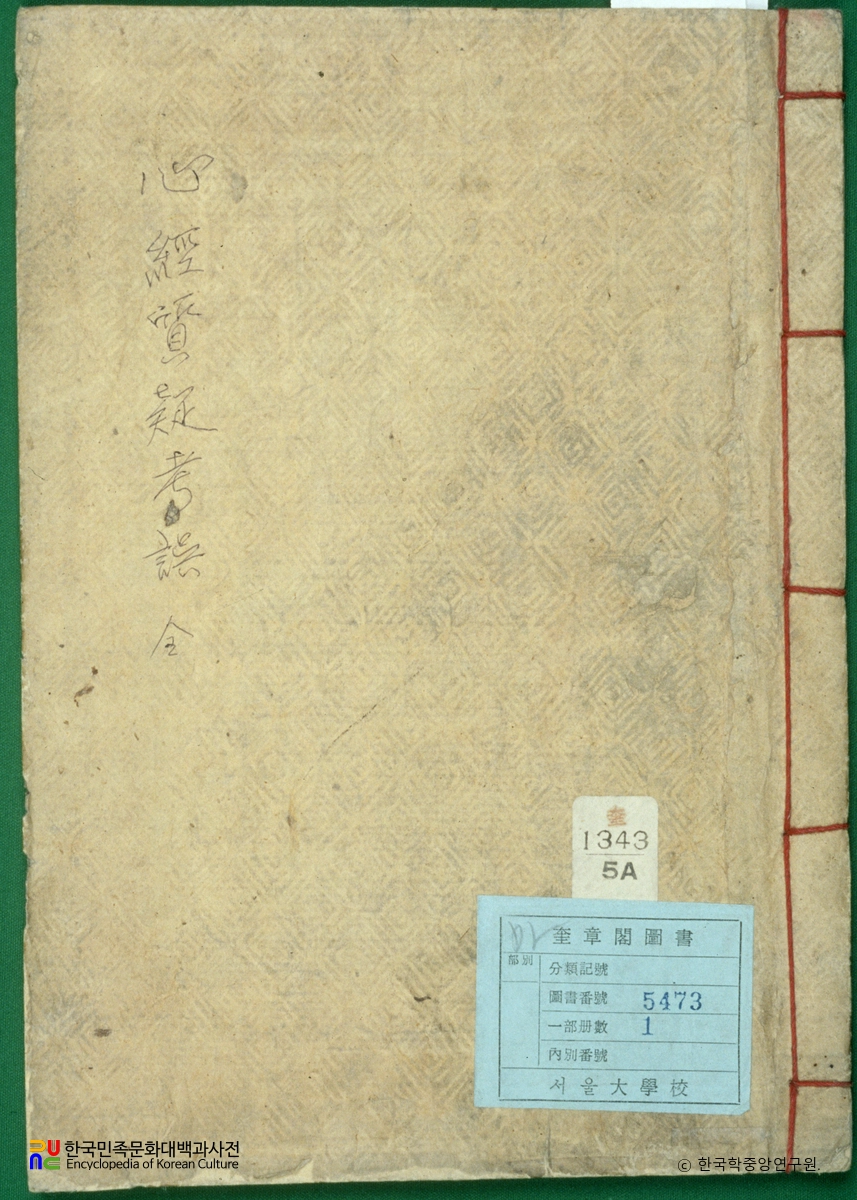 心經質疑考誤 全
奎
1343
5A
奎章閣圖書
部別
分類記號
圖書番號 5473
一部册數 1
內別番號
서울大學校
한국민족문화대백과사전
Encyclopedia of Korean Culture
© 한국학중앙연구원.